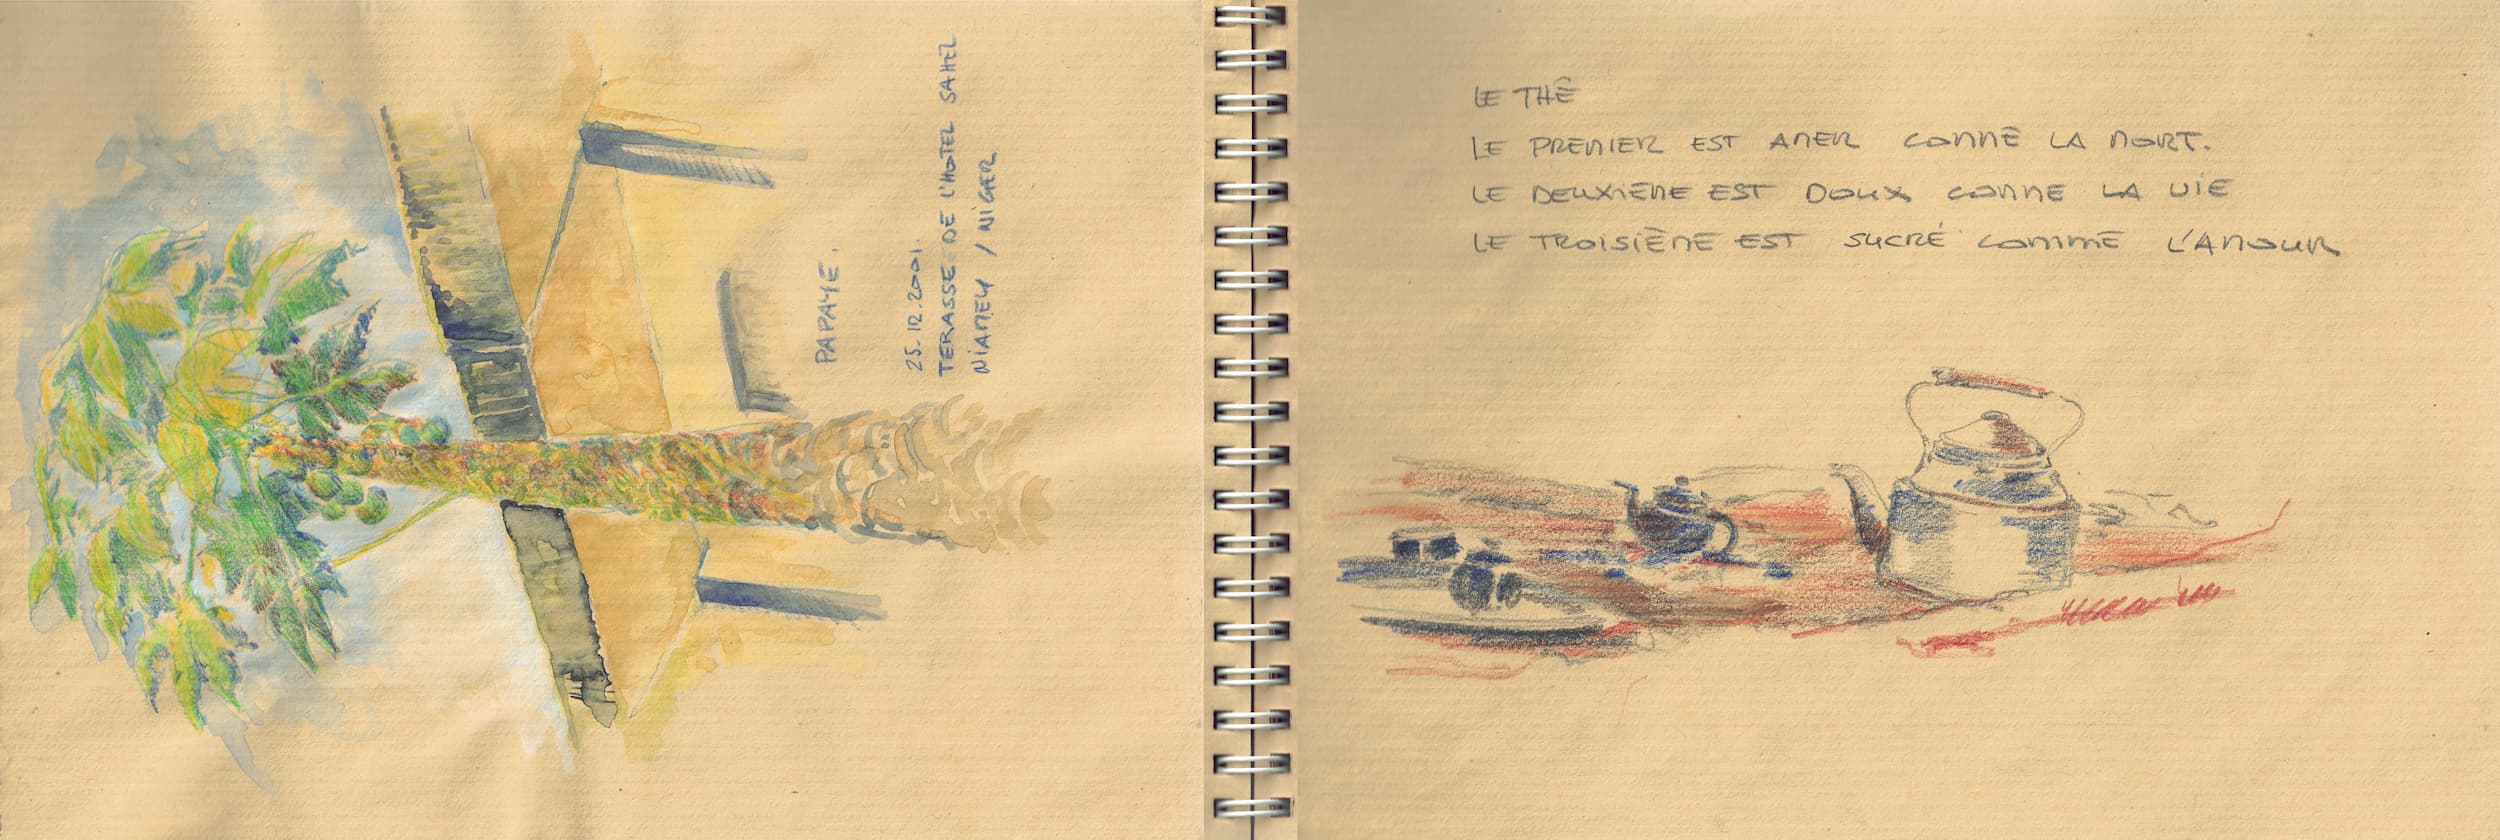 PAPAYE.
25.12.2001.
TERASSE DE L'HOTEL SAHEL
NIAMEY / NIGER
LE THÊ
LE PREMIER EST AMER COMME LA MORT.
LE DEUXIÈME EST DOUX COMME LA VIE
LE TROISIÈME EST SUCRÉ COMME L'AMOUR